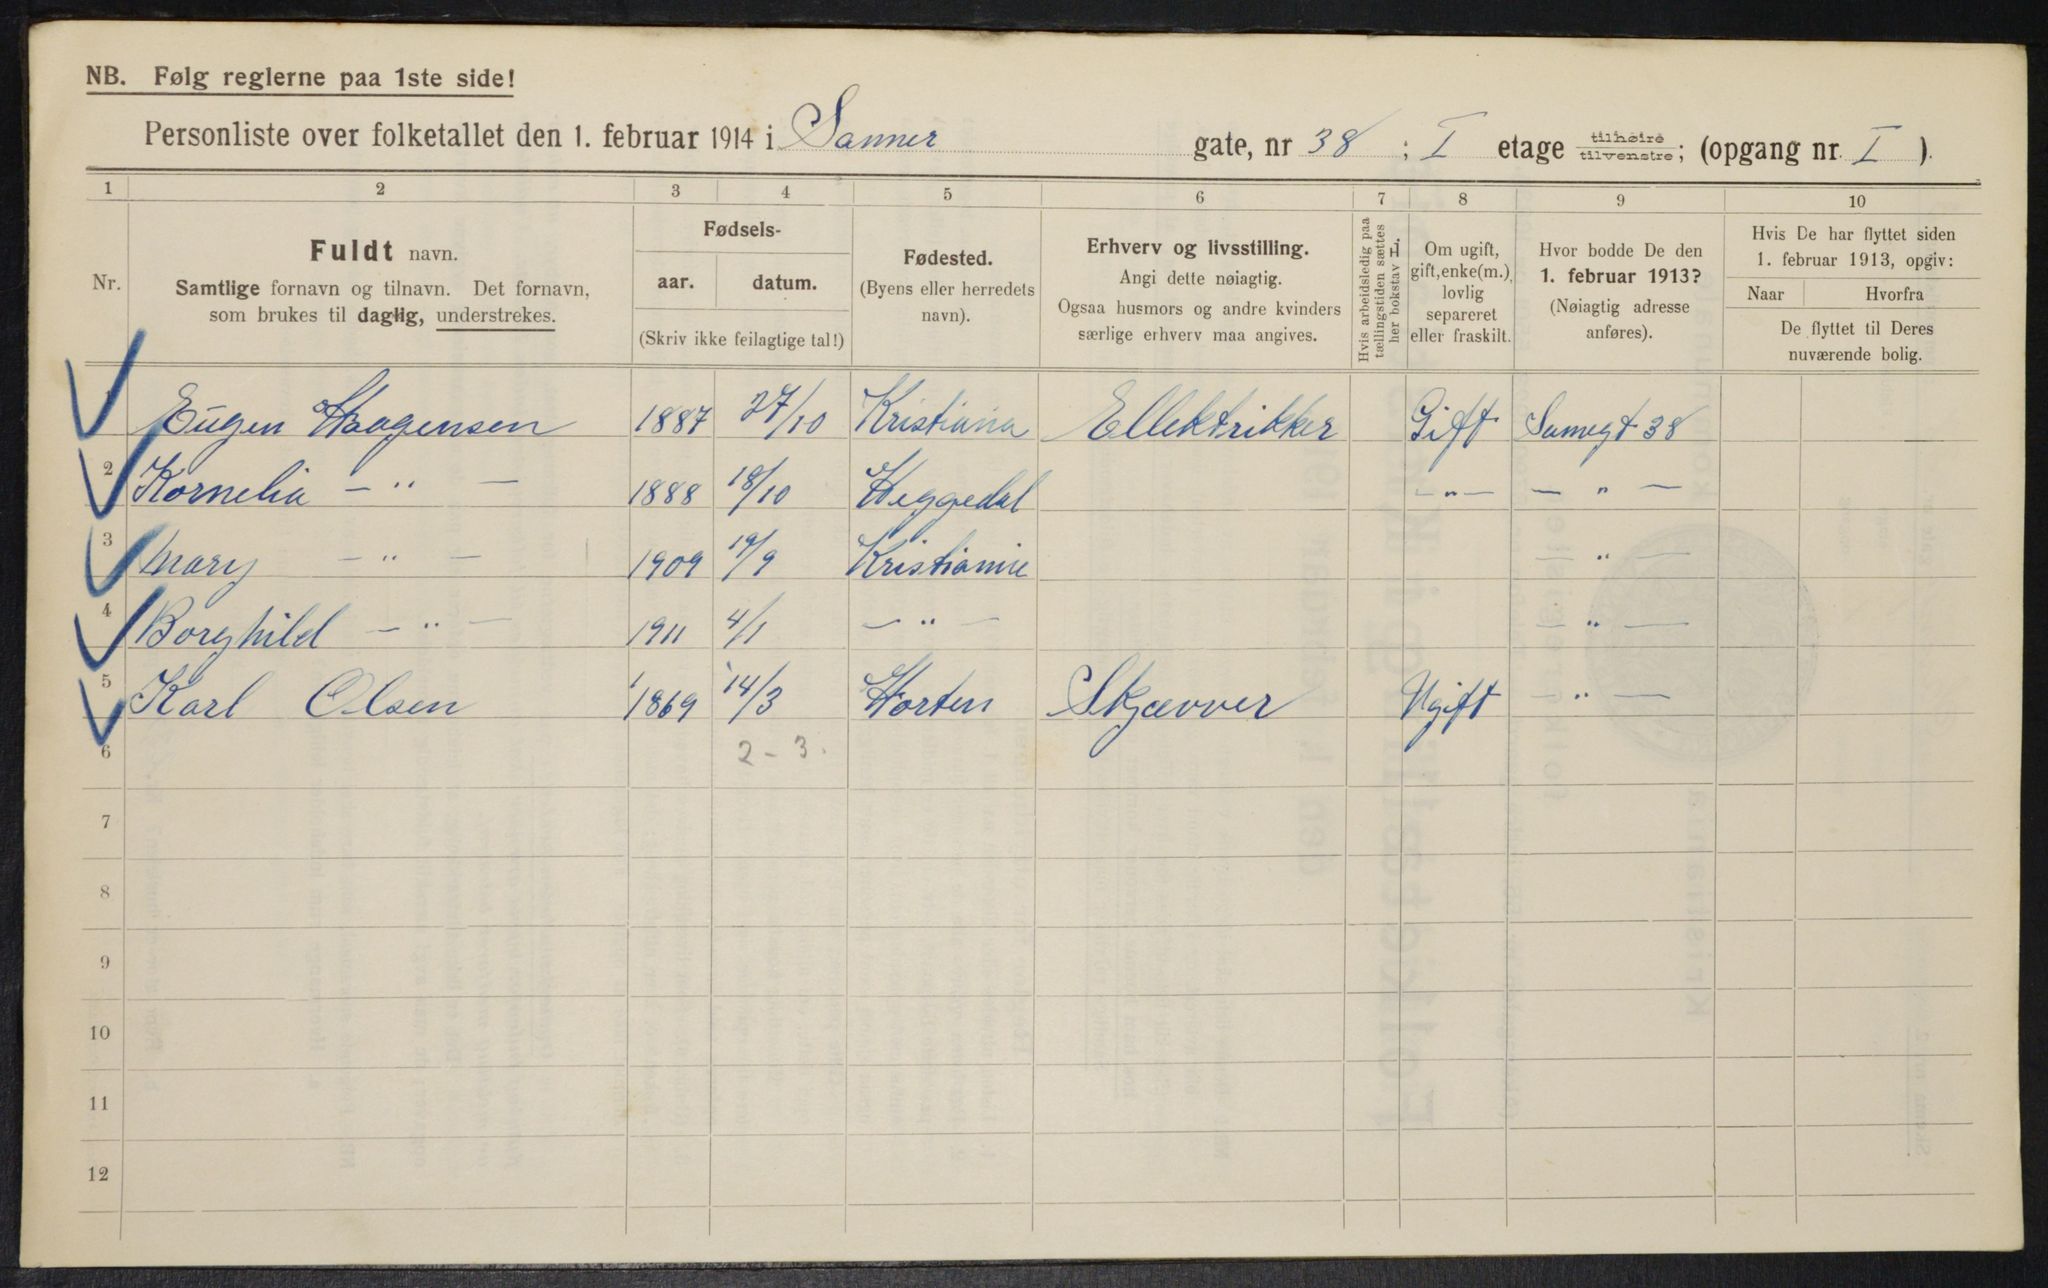 NB. Følg reglerne paa 1ste side!
Personliste over folketallet den 1. februar 1914 i Sanner gate, nr 38 ; I etage tilhøire tilvenstre; (opgang nr. I ).
1 2 3 4 5 6 7 8 9 10
Nr.
Fuldt navn.
Samtlige fornavn og tilnavn. Det fornavn,
som brukes til daglig, understrekes.
Fødsels-
aar. datum.
(Skriv ikke feilagtige tal!)
Fødested.
(Byens eller herredets
navn).
Erhverv og livsstilling.
Angi dette nøiagtig.
Ogsaa husmors og andre kvinders
særlige erhverv maa angives.
Hvis arbeidsledig paa
tællingstiden sættes
her bokstav L
Om ugift,
gift, enke(m.),
lovlig
separeret
eller fraskilt.
Hvor bodde De den
1. februar 1913?
(Nøiagtig adresse
anføres).
Hvis De har flyttet siden
1. februar 1913, opgiv:
Naar Hvorfra
De flyttet til Deres
nuværende bolig.
Eugen Haagensen 1887 27/10 Kristiania Ellektrikker Gift Samegt 38
2 Kornelia - " - 1888 18/10 Heggedal - " - - " -
3 Mary - " - 1909 19/9 Kristianie - " -
4 Borghild - " - 1911 4/1 - " - - " -
5 Karl Olsen 1869 14/3 Horten Skjævver Ugift - " -
6 2 - 3.
7
8
9
10
11
12